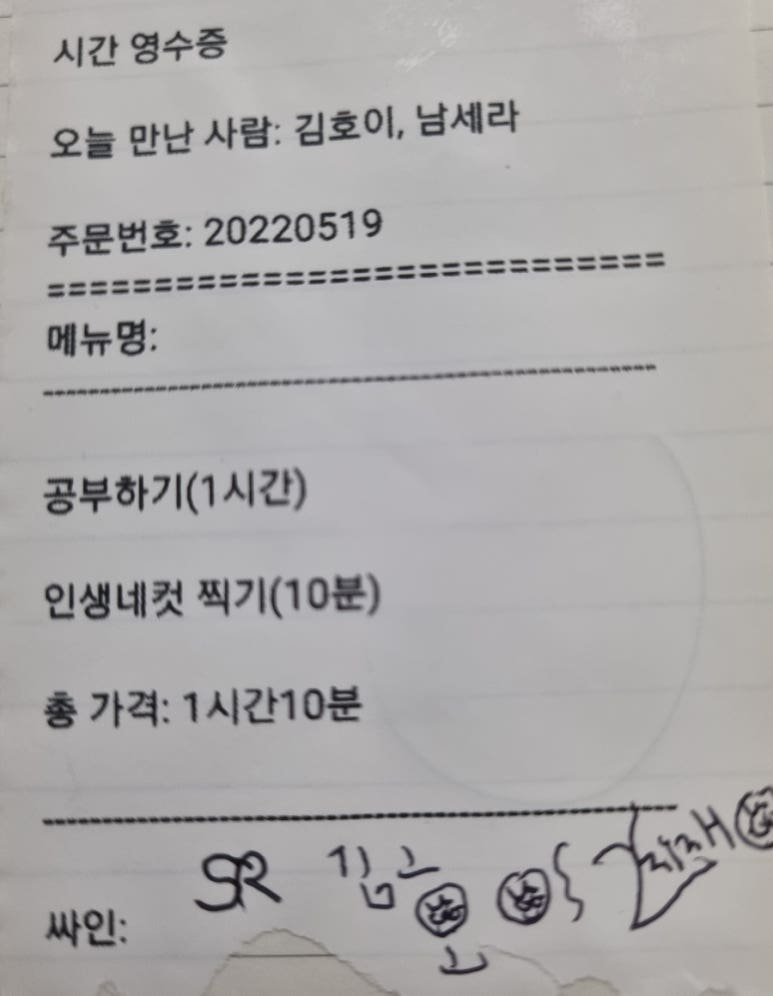 시간 영수증
오늘 만난 사람: 김호이, 남세라
주문번호: 20220519
=============================
메뉴명:
--------------------------------------------------------
공부하기(1시간)
인생네컷 찍기(10분)
총 가격: 1시간10분
--------------------------------------------------------
싸인: SR